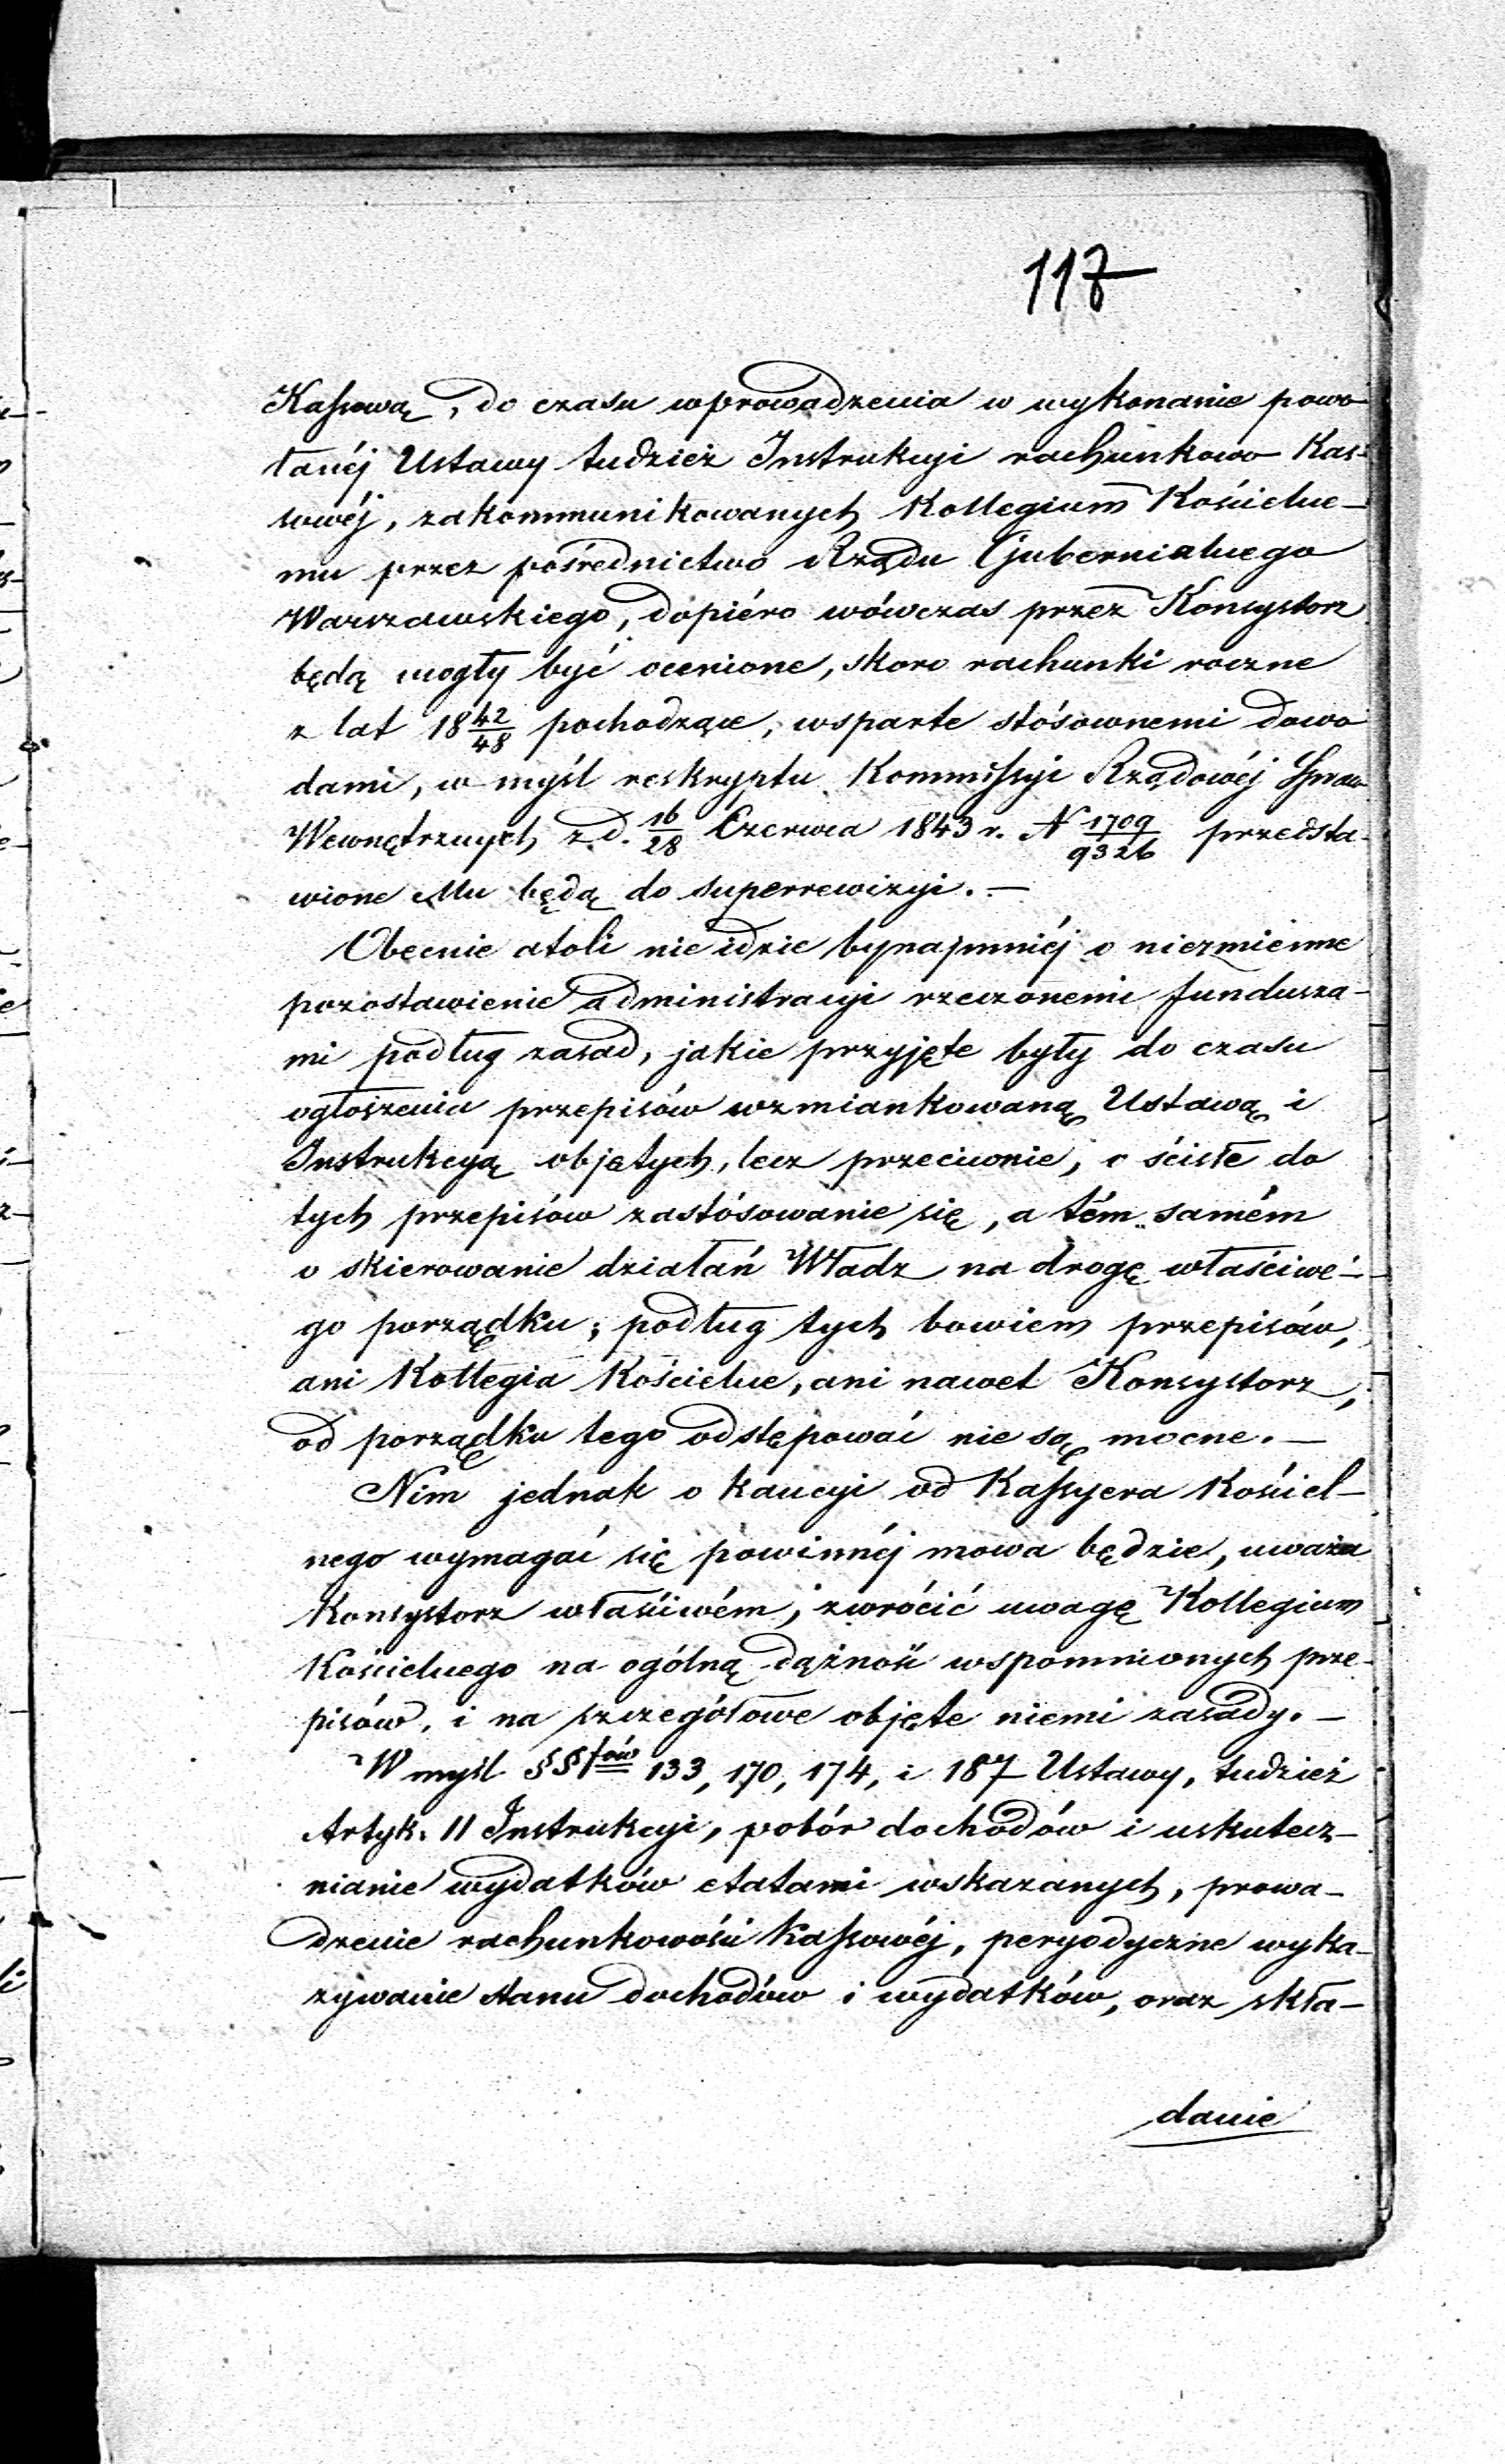 117
Kassową, do czasu wprowadzenia w wykonanie powo-
łanéj Ustawy tudzież Instrukcyi rachunkowo Kas-
sowéj, zakommunikowanych Kollegium Kościelne-
mu przez pośrednictwo Rządu Gubernialnego
Warszawskiego, dopiéro wówczas przez Konsystorz
będą mogły być ocenione, skoro rachunki roczne
z lat 18 42/48 pochodzące, wsparte stósownemi dowo
dami, w myśl reskryptu Kommissyi Rządowéj Spraw
Wewnętrznych z d. 16/28 Czerwca 1843 r. N 1709/9326 przedsta-
wione Mu będą do superrewizyi. —
Obecnie atoli nie idzie bynajmniéj o niezmienne
pozostawienie administracyi rzeczonemi fundusza-
mi podług zasad, jakie przyjęte były do czasu
ogłoszenia przepisów wzmiankowaną Ustawą i
Instrukcyą objętych, lecz przeciwnie, o ścisłe do
tych przepisów zastósowanie się, a tém samém
o skierowanie działań Władz na drogę właściwe-
go porządku; podług tych bowiem przepisów,
ani Kollegia Kościelne, ani nawet Konsystorz,
od porządku tego odstępować nie są mocne. —
Nim jednak o kaucyi od Kassyera Kościel-
nego wymagać się powinnéj mowa będzie, uważa
Konsystorz właściwém, zwrócić uwagę Kollegium
Kościelnego na ogólną dążność wspomnionych prze-
pisów, i na szczegółowe objęte niemi zasady. —
W myśl §§fów 133, 170, 174, i 187 Ustawy, tudzież
Artyk. 11 Instrukcyi, pobór dochodów i uskutecz-
nianie wydatków etatami wskazanych, prowa-
dzenie rachunkowości kassowéj, peryodyczne wyka-
zywanie stanu dochodów i wydatków, oraz skła-
danie